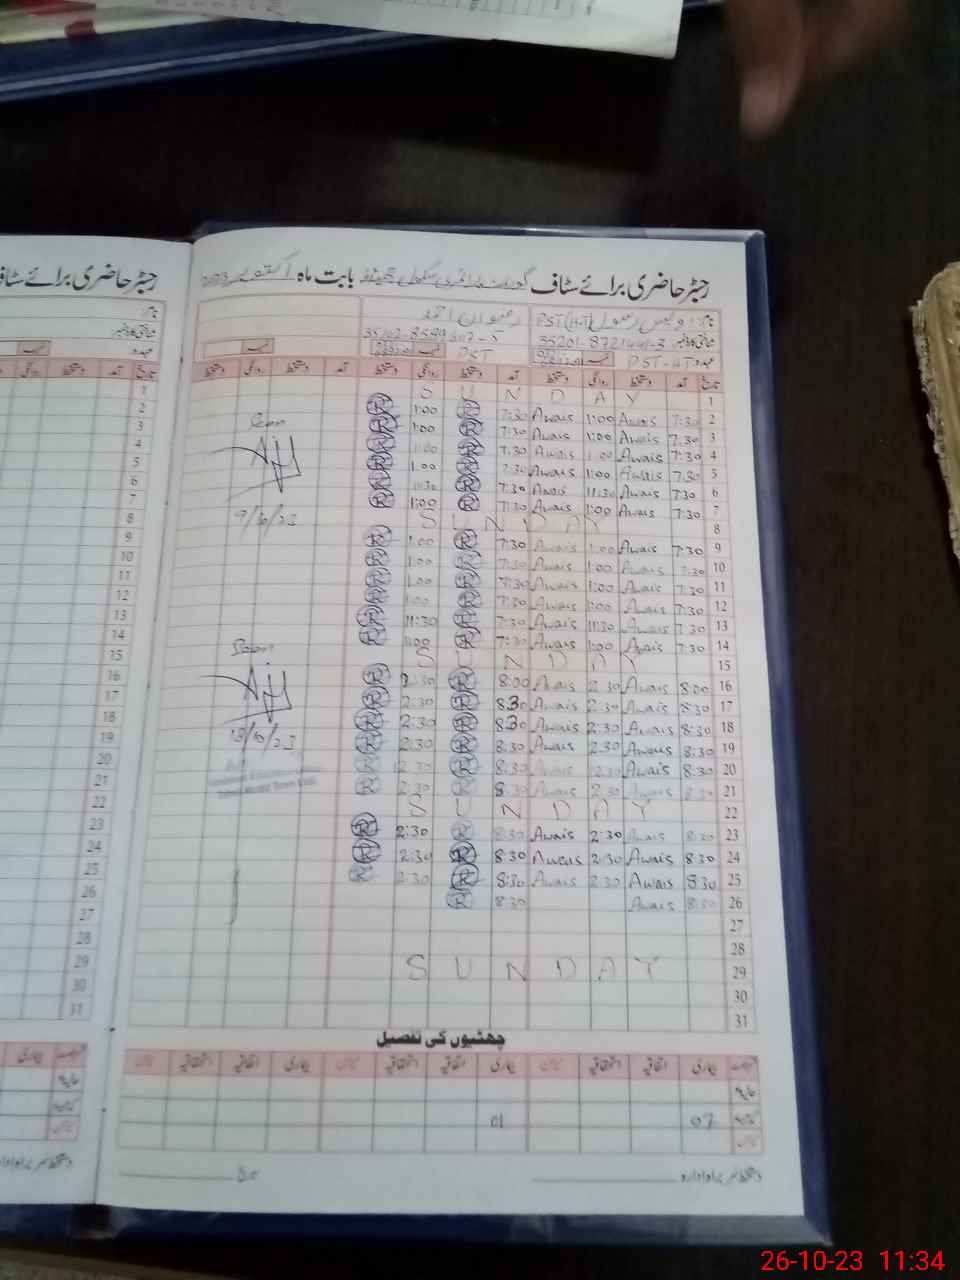 رجسٹر حاضری برائے سٹاف گورنمنٹ پرائمری سکول بابت ماہ اکتوبر 2023
نام: اویس رسول PST (H.T) رضوان احمد
شناختی کارڈ نمبر: 35201-8721441-3 35102-8589607-5
عہدہ PST-HT PST
تاریخ آمد دستخط روانگی دستخط آمد دستخط روانگی دستخط آمد دستخط روانگی دستخط
1 S U N D A Y
2 7:30 Awais 1:00 Awais 7:30 R 1:00 R
3 7:30 Awais 1:00 Awais 7:30 R 1:00 R
4 7:30 Awais 1:00 Awais 7:30 R 1:00 R
5 7:30 Awais 1:00 Awais 7:30 R 1:00 R
6 7:30 Awais 11:30 Awais 7:30 R 11:30 R
7 7:30 Awais 1:00 Awais 7:30 R 1:00 R
8 S U N D A Y
9 7:30 Awais 1:00 Awais 7:30 R 1:00 R
9/10/23
10 7:30 Awais 1:00 Awais 7:30 R 1:00 R
11 7:30 Awais 1:00 Awais 7:30 R 1:00 R
12 7:30 Awais 1:00 Awais 7:30 R 1:00 R
13 7:30 Awais 11:30 Awais 7:30 R 11:30 R
14 7:30 Awais 1:00 Awais 7:30 R 1:00 R
15 S U N D A Y
16 8:00 Awais 2:30 Awais 8:00 R 2:30 R
17 8:30 Awais 2:30 Awais 8:30 R 2:30 R
18 8:30 Awais 2:30 Awais 8:30 R 2:30 R
19 8:30 Awais 2:30 Awais 8:30 R 2:30 R
20 8:30 Awais 12:30 Awais 8:30 R 12:30 R
21 8:30 Awais 2:30 Awais 8:30 R 2:30 R
22 S U N D A Y
23 8:30 Awais 2:30 Awais 8:30 R 2:30 R
24 8:30 Awais 2:30 Awais 8:30 R 2:30 R
25 8:30 Awais 2:30 Awais 8:30 R 2:30 R
26 8:30 Awais 8:30 R
27
28
29 S U N D A Y
30
31
چھٹیوں کی تفصیل
بیماری اتفاقیہ استحقاقیہ میزان بیماری اتفاقیہ استحقاقیہ میزان بیماری اتفاقیہ استحقاقیہ میزان
حالیہ
سابقہ 07 01
میزان
دستخط سربراہ ادارہ تاریخ
رجسٹر حاضری برائے
نام:
شناختی کارڈ نمبر:
عہدہ
تاریخ آمد دستخط روانگی
1
2
3
4
5
6
7
8
9
10
11
12
13
14
15
16
17
18
19
20
21
22
23
24
25
26
27
28
29
30
31
بیماری
حالیہ
سابقہ
میزان
26-10-23 11:34